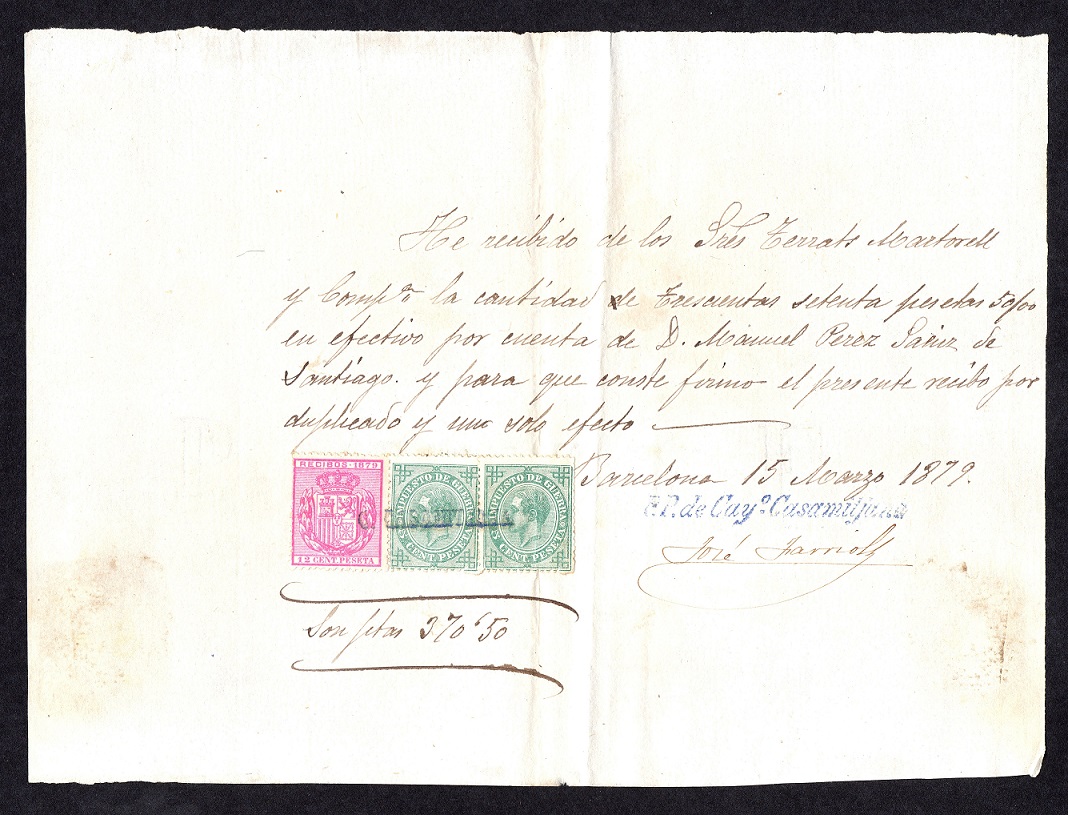 He recibido de los Sres Terrats Martorell
y Compª la cantidad de Trescientas setenta pesetas 50/00
en efectivo por cuenta de D. Manuel Perez Sáenz de
Santiago. y para que conste firmo el presente recibo por
duplicado y un solo efecto
Barcelona 15 Marzo 1879.
P.P. de Cayº. Casamitjana
José Farriols
RECIBOS-1879
12 CENT. PESETA
IMPUESTO DE GUERRA
5 CENT. PESETA
IMPUESTO DE GUERRA
5 CENT. PESETA
C.
Son ptas 370'50